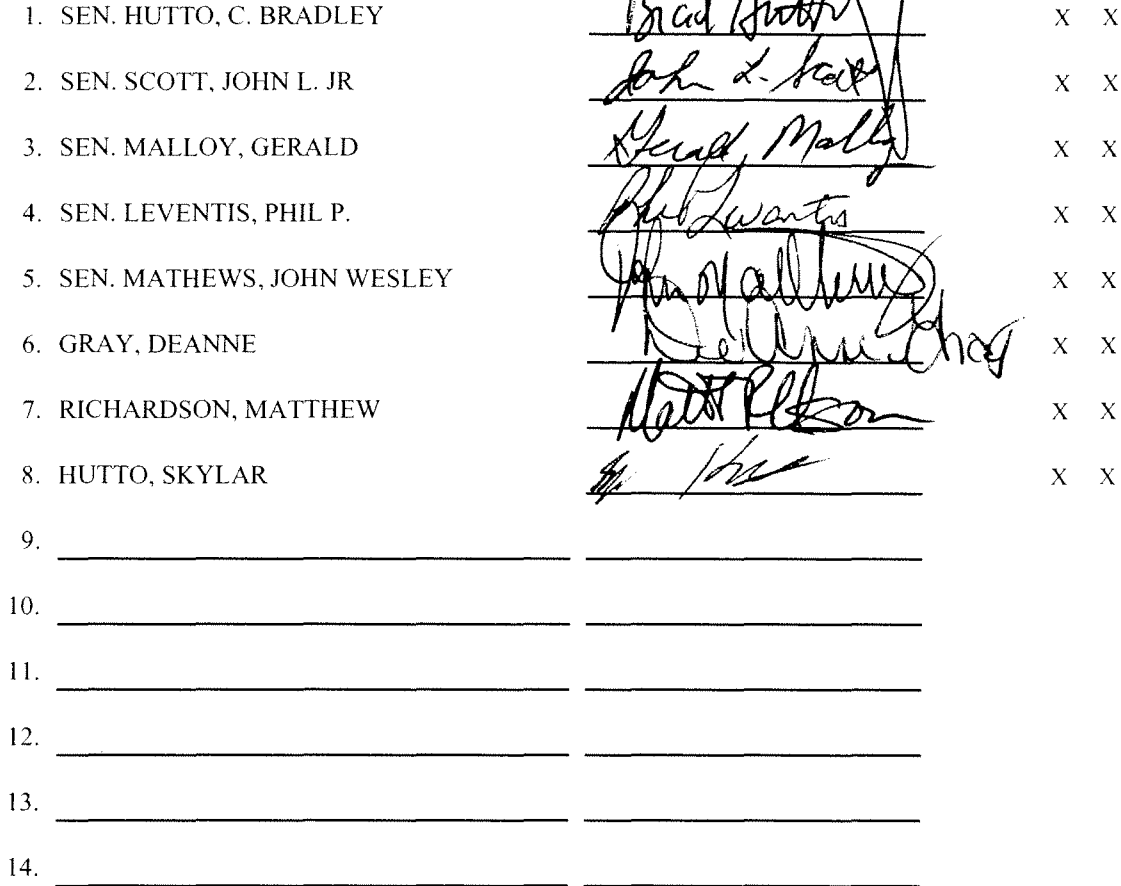 1. SEN. HUTTO, C. BRADLEY Brad Hutto X X
2. SEN. SCOTT, JOHN L. JR John L. Scott X X
3. SEN. MALLOY, GERALD Gerald Malloy X X
4. SEN. LEVENTIS, PHIL P. Phil P Leventis X X
5. SEN. MATHEWS, JOHN WESLEY John Matthews X X
6. GRAY, DEANNE DeAnne Gray X X
7. RICHARDSON, MATTHEW Matt X X
8. HUTTO, SKYLAR X X
9.
10.
11.
12.
13.
14.